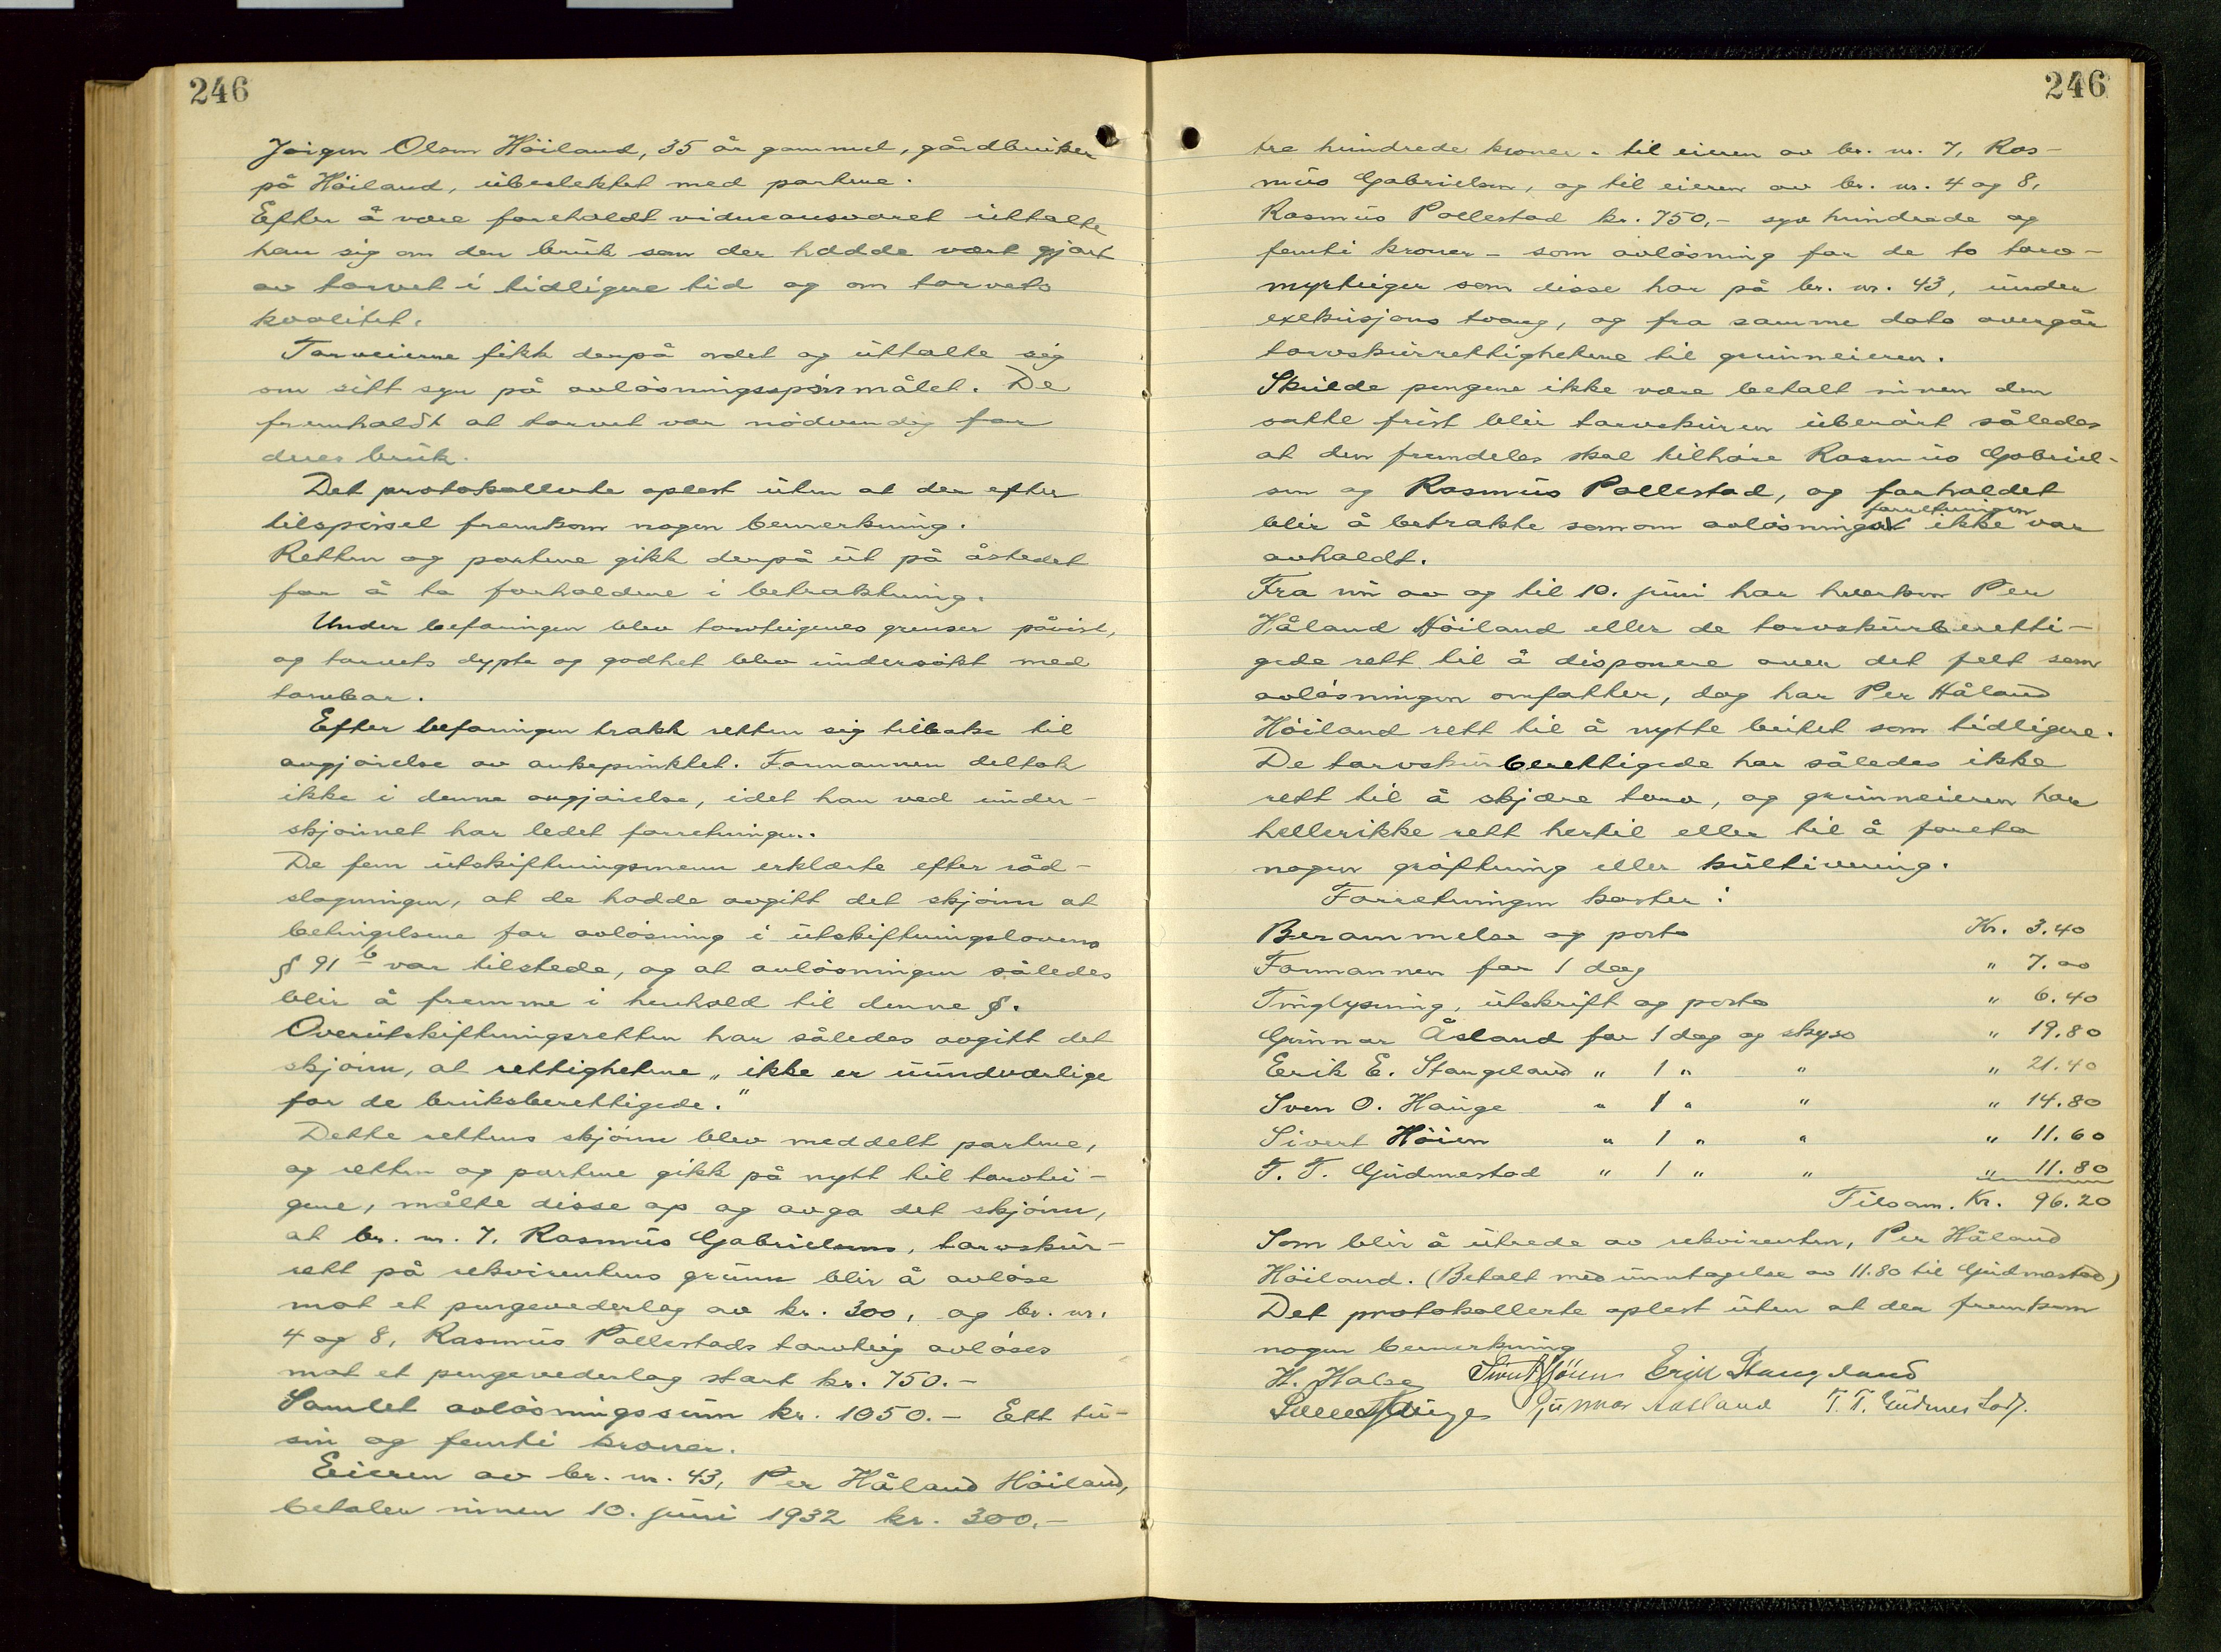 246
Jörgen Olsen Höiland, 35 år gammel, gårdbruker
på Höiland, ubeslektet med partene.
Efter å være foreholdt vidneansvaret uttalte
han sig om den bruk som der hadde vært gjort
av torvet i tidligere tid og om torvets
kvalitet.
Torveierne fikk derpå ordet og uttalte sig
om sitt syn på avlösningsspörsmålet. De
fremholdt at torvet var nödvendig for
deres bruk.
Det protokollerte oplest uten at der efter
tilspörsel fremkom nogen bemerkning.
Retten og partene gikk derpå ut på åstedet
for å ta forholdene i betraktning.
Under befaringen blev torvteigenes grenser påvist,
og torvets dypte og godhet blev undersökt med
torvbor.
Efter befaringen trakk retten sig tilbake til
avgjörelse av ankepunktet. Formannen deltok
ikke i denne avgjörelse, idet han ved under-
skjönnet har ledet forretningen.
De fem utskiftningsmenn erklærte efter råd-
slagningen, at de hadde avgitt det skjönn at
betingelsene for avlösning i utskiftningslovens
§ 91 b var tilstede, og at avlösningen således
blir å fremme i henhold til denne §.
Overutskiftningsretten har således avgitt det
skjönn, at rettighetene „ikke er uundværlige
for de bruksberettigede."
Dette rettens skjönn blev meddelt partene,
og retten og partene gikk på nytt til torvtei-
gene, målte disse op og avga det skjönn,
at br. nr. 7, Rasmus Gabrielsens, torvskur-
rett på rekvirentens grunn blir å avlöse
mot et pengevederlag av kr. 300, og br. nr.
4 og 8, Rasmus Pollestads torvteig avlöses
mot et pengevederlag stort kr. 750.-
Samlet avlösningssum kr. 1050.- Ett tu-
sin og femti kroner.
Eieren av br. nr. 43, Per Håland Höiland,
betaler innen 10. juni 1932 kr. 300.-
246
tre hundrede kroner - til eieren av br. nr. 7, Ras-
mus Gabrielsen, og til eieren av br. nr. 4 og 8,
Rasmus Pollestad kr. 750,- syv hundrede og
femti kroner - som avlösning for de to torv-
myrteiger som disse har på br. nr. 43, under
exekusjons tvang, og fra samme dato overgår
torvskurrettighetene til grunneieren.
Skulde pengene ikke være betalt innen den
satte frist blir torvskuren uberört således
at den fremdeles skal tilhöre Rasmus Gabriel-
sen og Rasmus Pollestad, og forholdet
forretningen
blir å betrakte som om avlösnings ikke var
avholdt.
Fra nu av og til 10. juni har hverken Per
Håland Höiland eller de torvskurberetti-
gede rett til å disponere over det felt som
avlösningen omfatter, dog har Per Håland
Höiland rett til å nytte beitet som tidligere.
De torvskurberettigede har således ikke
rett til å skjære torv, og grunneieren har
hellerikke rett hertil eller til å foreta
nogen gröftning eller kultivering.
Forretningen koster:
Berammelse og porto Kr. 3.40
Formannen for 1 dag " 7.00
Tinglysning, utskrift og porto " 6.40
Gunnar Åsland for 1 dag og skyss " 19.80
Erik E. Stangeland " 1 " " " 21.40
Sven O. Hauge " 1 " " " 14.80
Sivert Höien " 1 " " " 11.60
T. T. Gudmestad " 1 " " " 11.80
Tilsam. Kr. 96.20
Som blir å utrede av rekvirenten, Per Håland
Höiland. (Betalt med unntagelse av 11.80 til Gudmestad)
Det protokollerte oplest uten at der fremkom
nogen bemerkning
H. Halse Sivert Höien Erik Stangeland
Sven Hauge Gunnar Aasland T. T. Gudmestad.